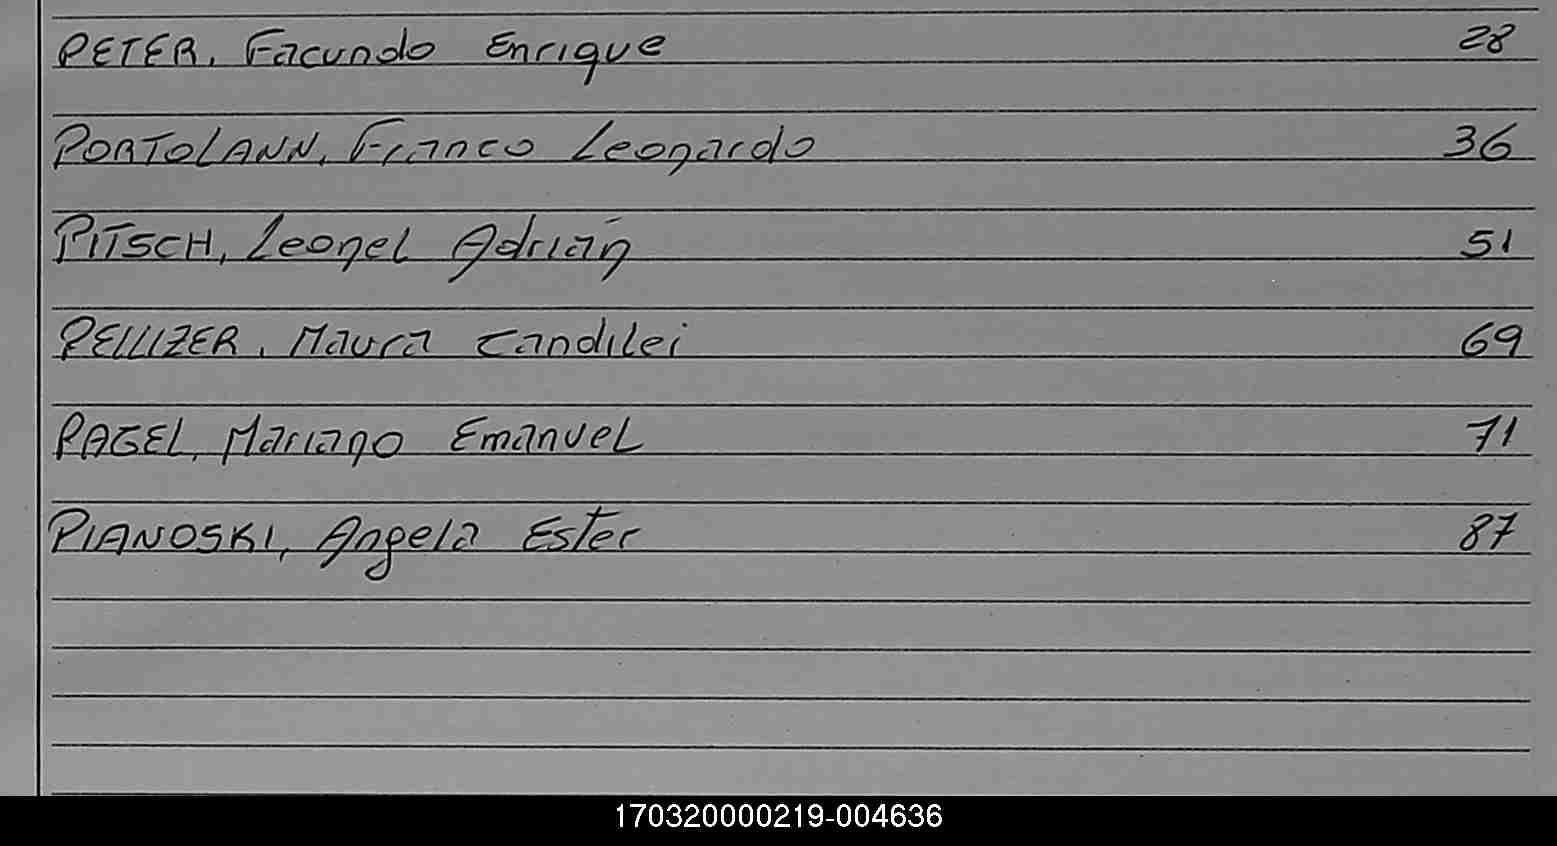 PETER, Facundo Enrique 28
PORTOLANN, Franco Leonardo 36
PITSCH, Leonel Adrián 51
PELLIZER, Maura Candilei 69
PAGEL, Mariano Emanuel 71
PIANOSKI, Angela Ester 87
170320000219-004636